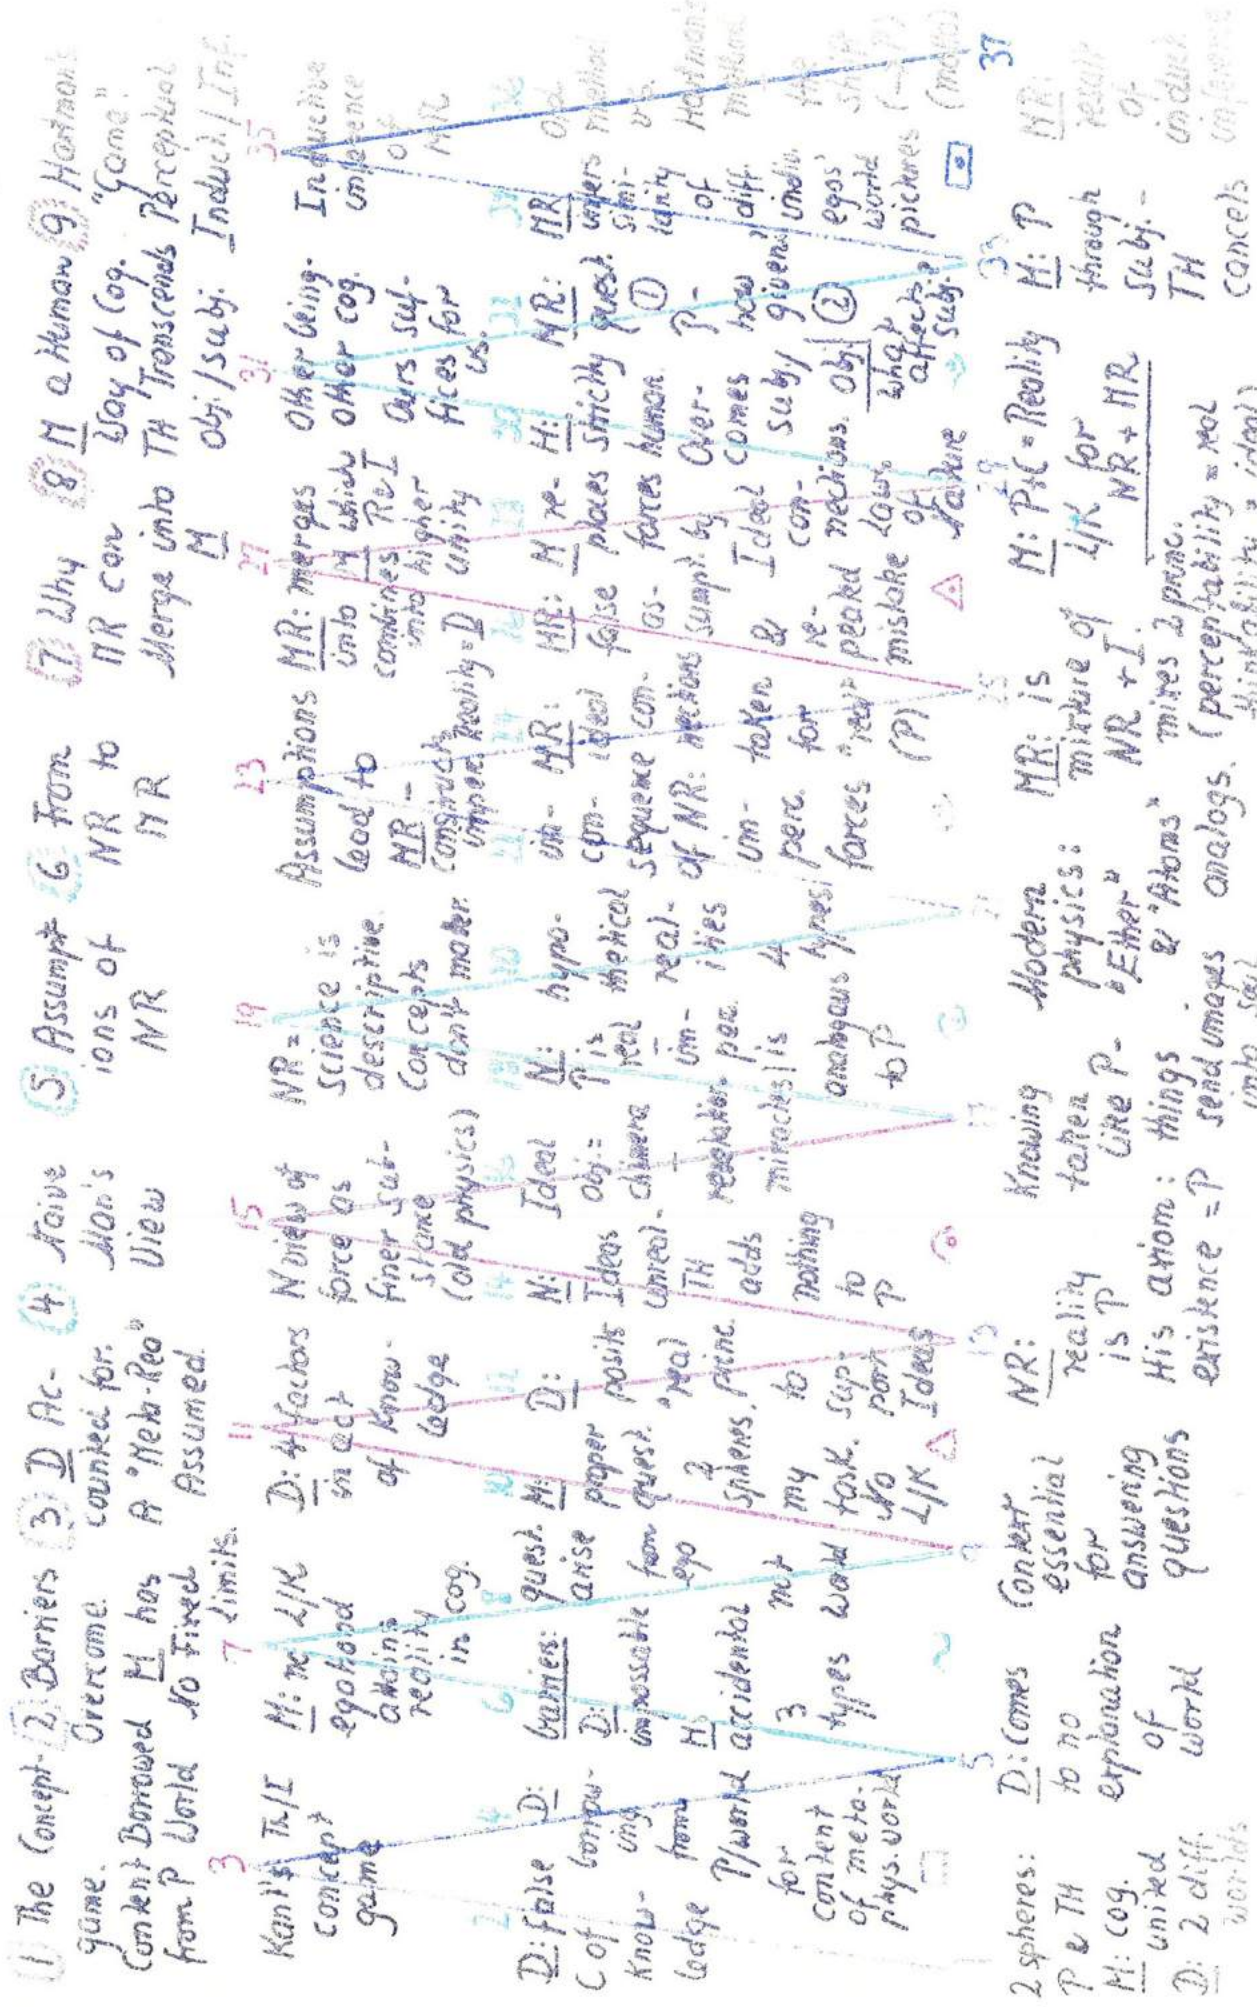 1 The Concept-
game.
Content Borrowed
from P World
2 Barriers
Overcome.
M has
No Fixed
Limits.
3 D Ac-
counted for.
A "Meta-Rea"
Assumed.
4 Naive
Man's
View
5 Assumpt
ions of
NR
6 From
NR to
MR
7 Why
MR can
Merge into
M
8 M a Human
Way of Cog.
TH Transcends
obj/subj.
9 Hartman's
"Game"
Perceptual
Induct/Inf.
3
7
11
15
19
23
27
31
35
Kant's Th/I
concept
game
M: no L/K
egohood
attains
reality
in cog.
D: 4 factors
in act
of know-
ledge
N view of
force as
finer sub-
stance
(old physics)
NR =
science is
descriptive
Concepts
don't matter
Assumptions
lead to
MR -
constructs
imper. Reality = D
MR: merges
into M which
combines R & I
into higher
unity
other being-
other cog.
Ours suf-
fices for
us.
Inductive
inference
of
MR
2
4
6
8
10
12
14
16
18
20
22
24
26
28
30
32
34
36
D: false
C of
Know-
ledge
D:
borrow-
ing
from
P/world
for
content
of meta-
phys. world
barriers:
D:
impossible
M:
accidental
3
types
quest.
arise
from
ego
not
world
M:
proper
quest.
2
spheres,
my
task.
No
L/K
D:
posits
real
princ.
to
sup-
port
Ideas
N:
Ideas
unreal-
TH
adds
nothing
to
P
Ideal
obj.=
chimera
-
revelation
miracles
N:
P is
real
-
im-
perc.
is
analogous
to P
hypo-
thetical
real-
ities
4
types
in-
con-
sequence
of NR:
im-
perc.
forces
MR:
ideal
con-
nections
taken
for
"real"
(P)
MR:
false
as-
sumpt.
&
re-
peated
mistake
M re-
places
forces
by
Ideal
con-
nections.
Laws
of
Nature
H:
strictly
human.
Over-
comes
subj/
obj
MR:
quest.
1
P -
how
given?
2
what
affects
subj.?
MR
infers
simi-
larity
of
diff.
indiv.
egos'
world
pictures
Old
method
vs.
Hartman's
method
5
9
13
17
21
25
29
33
37
2 spheres:
P & TH
M: cog.
united
D: 2 diff.
worlds
D: Comes
to no
explanation
of
world
Context
essential
for
answering
questions
NR:
reality
is P
His axiom:
existence = P
Knowing
taken
like P-
things
send images
into soul
Modern
physics:
"Ether"
& "Atoms"
analogs.
MR: is
mixture of
NR + I.
mixes 2 princ.
(perceptability = real
thinkability = ideal)
M: P+C = Reality
L/K for
NR + MR
M: P
through
Subj. -
TH
cancels
MR:
result
of
induct.
inference